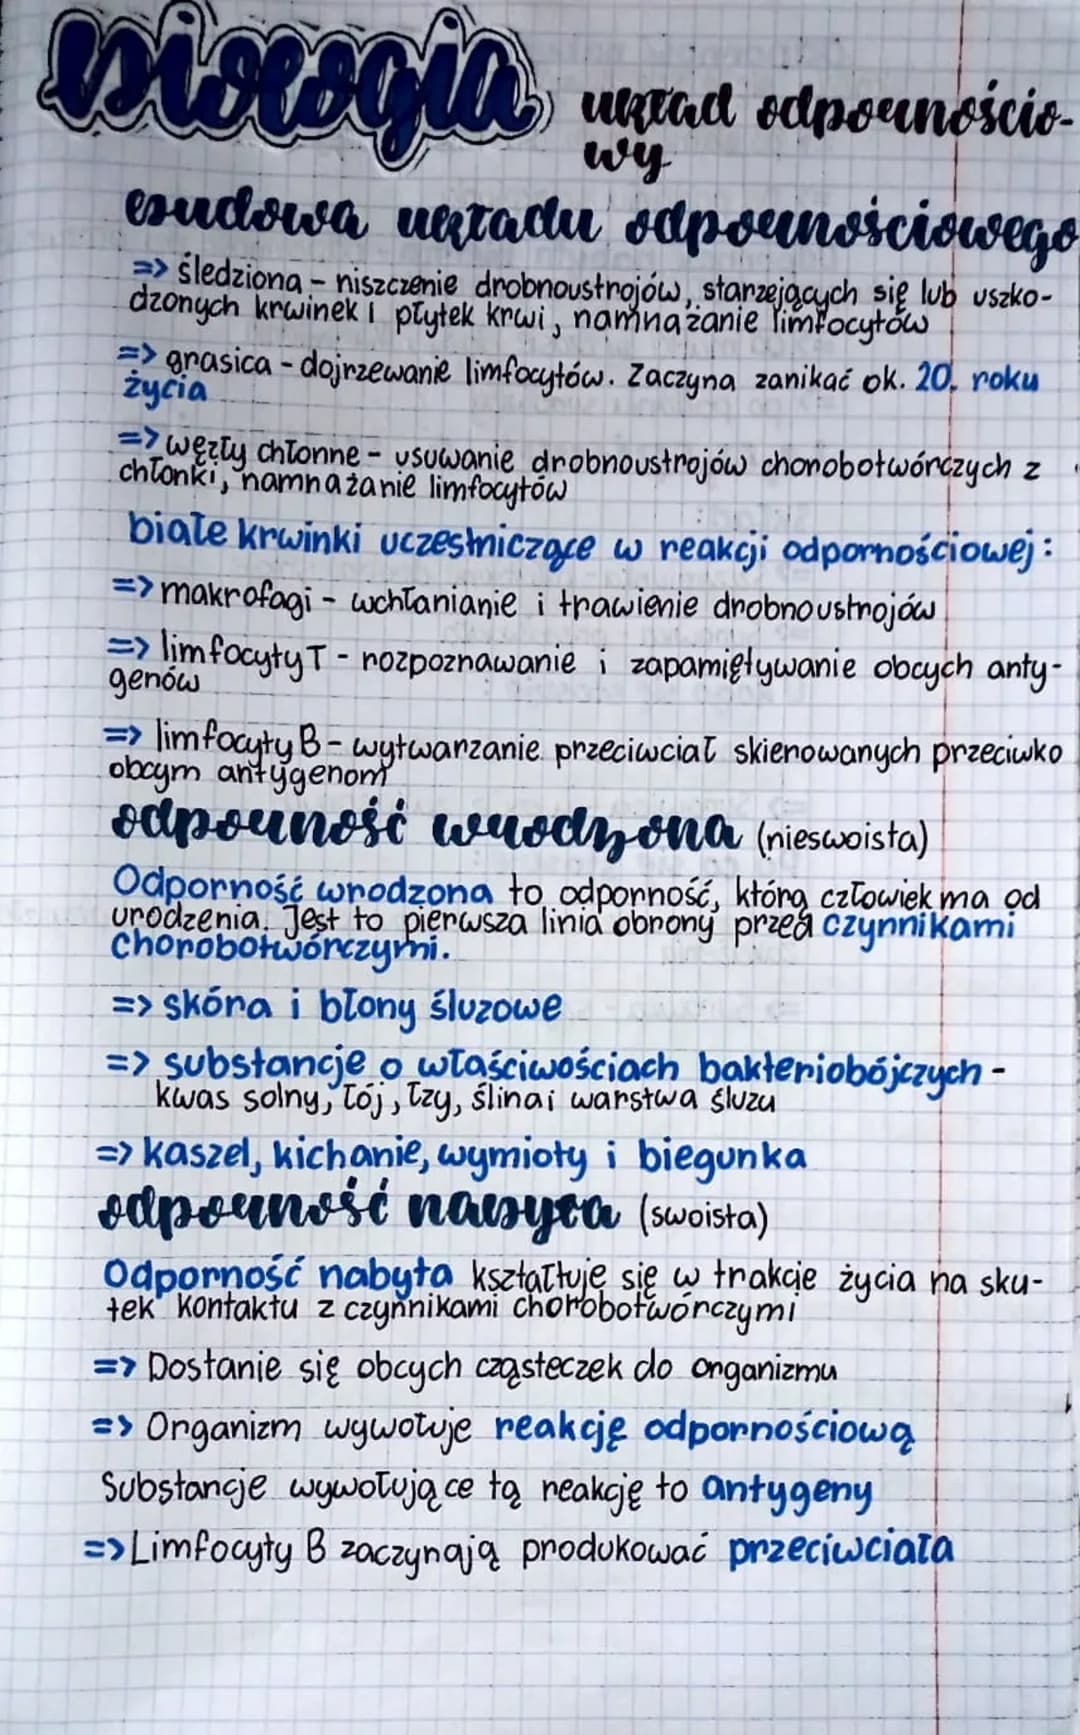 biologia układ odpornościo-
wy
budowa układu odpornościowego
=> śledziona - niszczenie drobnoustrojów, starzejących się lub uszko-
dzonych krwinek i płytek krwi, namnażanie limfocytów
=> grasica - dojrzewanie limfocytów. Zaczyna zanikać ok. 20. roku
życia
=> węzły chłonne - usuwanie drobnoustrojów chorobotwórczych z
chłonki, namnażanie limfocytów
białe krwinki uczestniczące w reakcji odpornościowej:
=> makrofagi - wchłanianie i trawienie drobnoustrojów
=> limfocyty T - rozpoznawanie i zapamiętywanie obcych anty-
genów
=> limfocyty B - wytwarzanie przeciwciał skierowanych przeciwko
obcym antygenom
odporność wrodzona (nieswoista)
Odporność wrodzona to odporność, którą człowiek ma od
urodzenia. Jest to pierwsza linia obrony przed czynnikami
chorobotwórczymi.
=> skóra i błony śluzowe
=> substancje o właściwościach bakteriobójczych -
kwas solny, łój, łzy, ślina i warstwa śluzu
=> kaszel, kichanie, wymioty i biegunka
odporność nabyta (swoista)
Odporność nabyta kształtuje się w trakcie życia na sku-
tek kontaktu z czynnikami chorobotwórczymi
=> Dostanie się obcych cząsteczek do organizmu
=> Organizm wywołuje reakcję odpornościową
Substancje wywołujące tą reakcję to antygeny
=> Limfocyty B zaczynają produkować przeciwciała